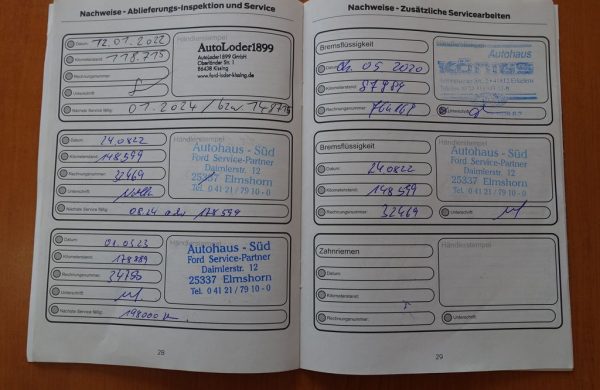 Nachweise - Ablieferungs-Inspektion und Service
Datum: 12.01.2022
Kilometerstand: 118.715
Rechnungsnummer:
Unterschrift:
Nächste Service fällig: 01.2024 / bzw. 148715
Händlerstempel
AutoLoder1899
AutoLoder1899 GmbH
Oberländer Str. 1
86438 Kissing
www.ford-loder-kissing.de
Datum: 24.0822
Kilometerstand: 148.599
Rechnungsnummer: 32469
Unterschrift:
Nächste Service fällig: 08.24 178.599
Händlerstempel
Autohaus - Süd
Ford Service-Partner
Daimlerstr. 12
25337 Elmshorn
Tel. 0 41 21 / 79 10 - 0
Datum: 01.0323
Kilometerstand: 178889
Rechnungsnummer:
Unterschrift:
Nächste Service fällig: 198000 km
Händlerstempel
Autohaus - Süd
Ford Service-Partner
Daimlerstr. 12
25337 Elmshorn
Tel. 0 41 21 / 79 10 - 0
28
Nachweise - Zusätzliche Servicearbeiten
Bremsflüssigkeit
Datum: 05 2020
Kilometerstand:
Rechnungsnummer:
Händlerstempel
Autohaus
KÖNIG
Unterschrift:
Bremsflüssigkeit
Datum: 24.0822
Kilometerstand: 148.599
Rechnungsnummer: 32469
Händlerstempel
Autohaus - Süd
Ford Service-Partner
Daimlerstr. 12
25337 Elmshorn
Tel. 0 41 21 / 79 10 - 0
Unterschrift:
Zahnriemen
Datum:
Kilometerstand:
Rechnungsnummer:
Händlerstempel
Unterschrift:
29